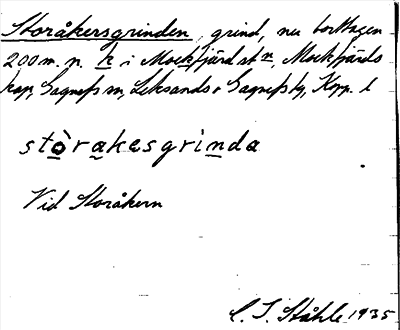 Storåkersgrinden, grind, nu borttagen
200 m. n. k i Mockfjärd st n, Mockfjärds
kap, Gagnefs sn, Leksands o Gagnefs tg, Kopp. l
stòrakesgrìnda
Vid Storåkern
C. I. Ståhle 1935